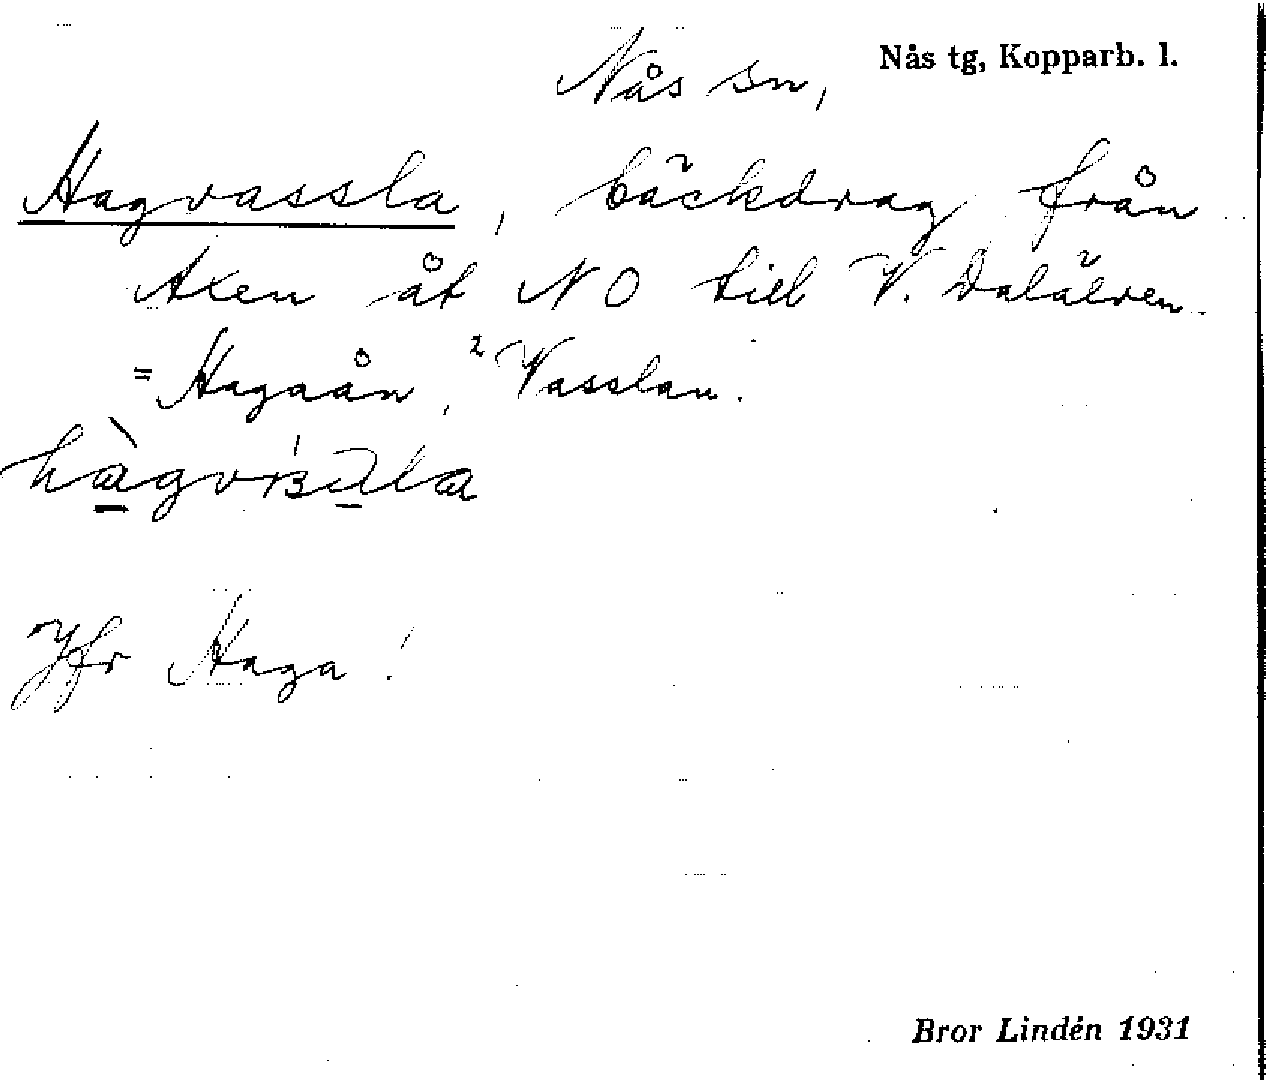 Nås tg, Kopparb. l.
Nås sn,
Hagvassla, bäckdrag från
Axen åt NO till V. Dalälven.
= Hagaån, 2 Vasslan.
Jfr Haga!
Bror Lindén 1931